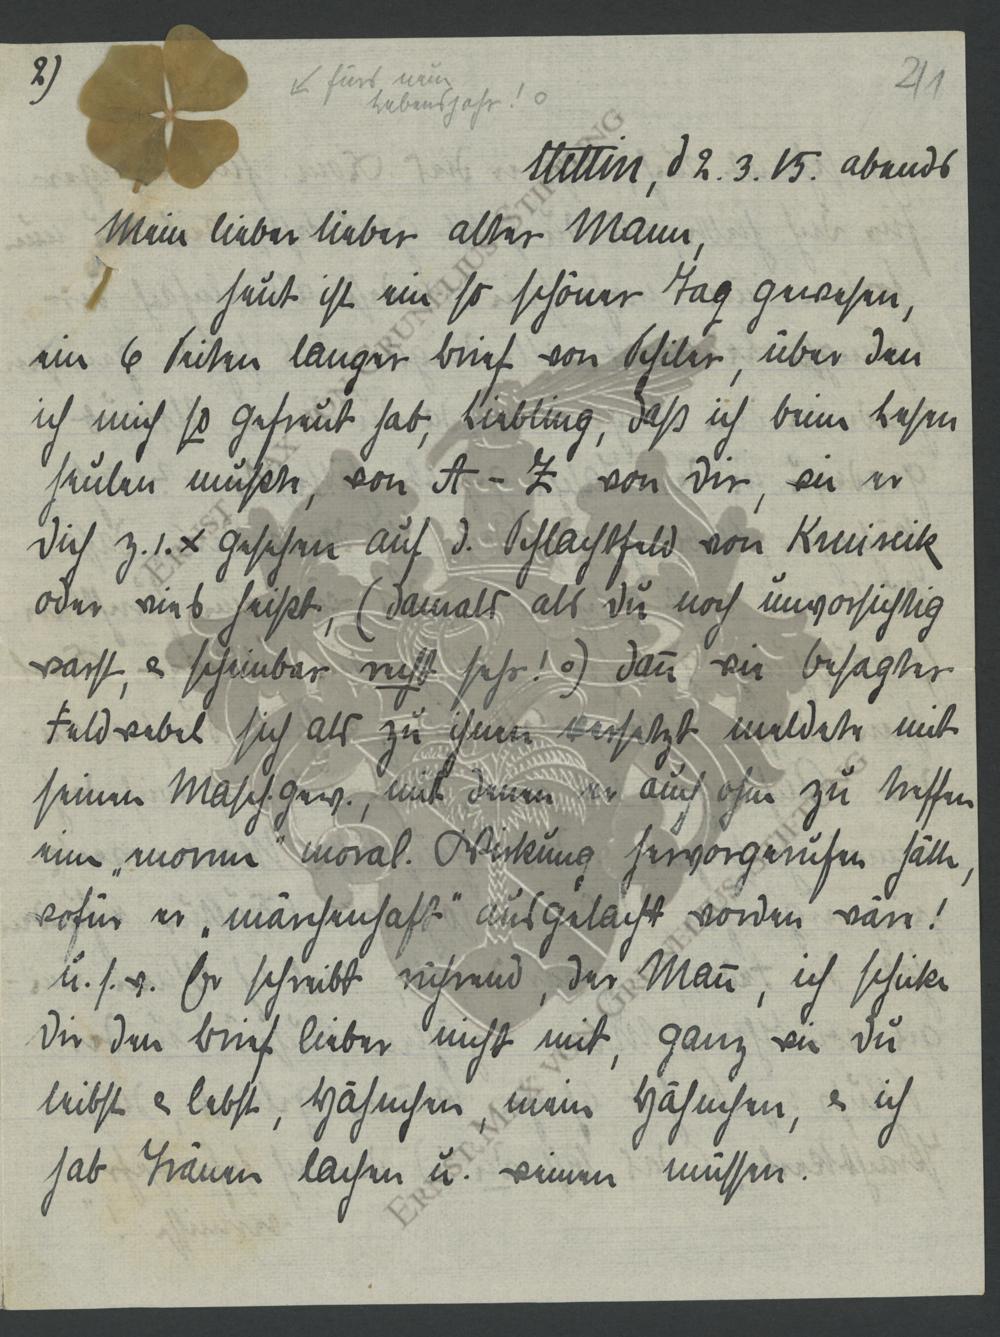 2)
↙ fürs neue
Lebensjahr! o
2/1
Stettin, d 2. 3. 15. abends
Mein lieber lieber alter Mann,
heut ist ein so schöner Tag gewesen,
ein 6 Seiten langer Brief von Schiler, über den
ich mich so gefreut hab, Liebling, daß ich beim Lesen
heulen mußte, von A - Z von Dir, wie er
Dich z. 1. x gesehen auf d. Schlachtfeld von
oder wies heißt, (damals als Du noch unvorsichtig
warst, & scheinbar recht sehr! o) dan̄ wie besagter
Feldwebel sich als zu ihnen versetzt meldete mit
seinen Masch.gew., mit denen er auch ohne zu treffen
eine „enorme" moral. Wirkung hervorgerufen hätte,
wofür er „märchenhaft" ausgelacht worden wäre!
u. s. w. Er schreibt rührend, der Man̄, ich schicke
Dir den Brief lieber nicht mit, ganz wie Du
leibst & lebst, Hähnchen, mein Hähnchen, & ich
hab Tränen lachen u. weinen müssen.
ERNST MAX VON GRUNELIUS-STIFTUNG
ERNST MAX VON GRUNELIUS-STIFTUNG